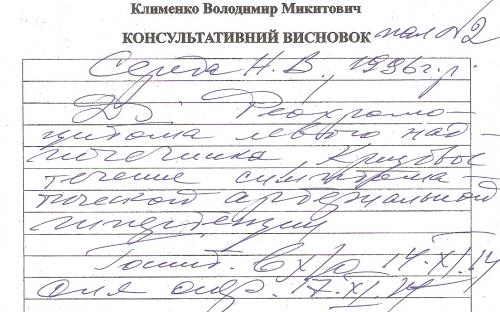 Клименко Володимир Микитович
КОНСУЛЬТАТИВНИЙ ВИСНОВОК пал №2
Середа Н. В. 1996 г.р.
Дз. Феохромо-
цитома левого над-
почечника Кризовое
течение симптома-
тической артериальной
гипертензии
Госпит. в х/о 14.XI.14
для опер. 17.XI.14